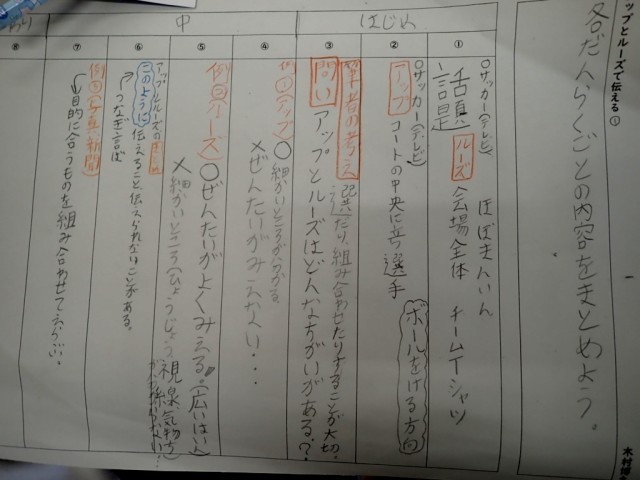 ップとルーズで伝える①
各だんらくごとの内容をまとめよう。
はじめ
中
わり
①
○サッカー(テレビ) ほぼまんいん
話題 ルーズ 会場全体 チームTシャツ
②
○サッカー(テレビ)
アップ コートの中央に立つ選手 ボールをける方向
③
筆者の考え 選んだり、組み合わせたりすることが大切。
問い アップとルーズはどんなちがいがある?
④
例①(アップ) ○細かいところが分かる。
×ぜんたいがみえない・・・
⑤
例②(ルーズ) ○ぜんたいがよくみえる。(広いはんい)
×細かいところ(ひょうじょう 視線 気持ち
⑥
アップとルーズのまとめ
このように 伝えること、伝えられないことがある。
つなぎ言葉
⑦
例③(写真、新聞)
目的に合うものを組み合わせて
⑧